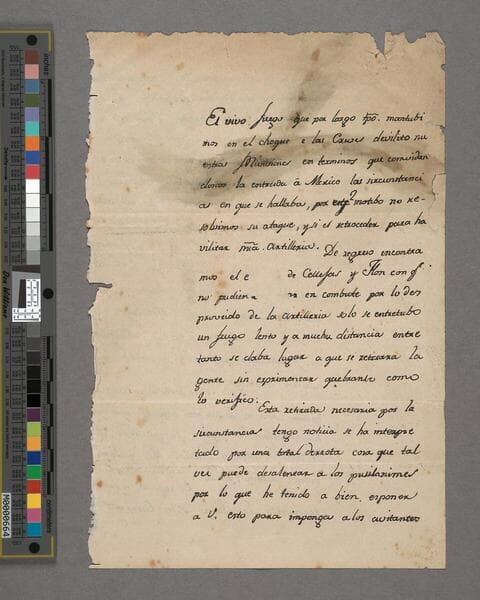 El vivo fuego que por largo tpõ. mantubi
mos en el choque e las Cruces devilito nu
estras Municiones en terminos que convidan
donos la entrada â Mexico las sircunstanci
as en que se hallaba, por este motibo no re-
solvimos su ataque, y si el retroceder para ha
vilitar nrâ. Artilleria. De regreso encontra
mos el e de Callejas y Flon con q.
no pudien en combate por lo des
proveido de la artilleria solo se entretubo
un fuego lento y a mucha distancia entre
tanto se daba lugar a que se retirara la
gente sin esprimentar quebranto como
lo verifico.
Esta retirada necesaria por la
sircunstancia tengo noticia se ha interpre
tado por una total derrota cosa que tal
vez puede desalentar a los pusilanimes
por lo que he tenido a bien, esponer
a V. esto para imponga a los avitantes
M0000664